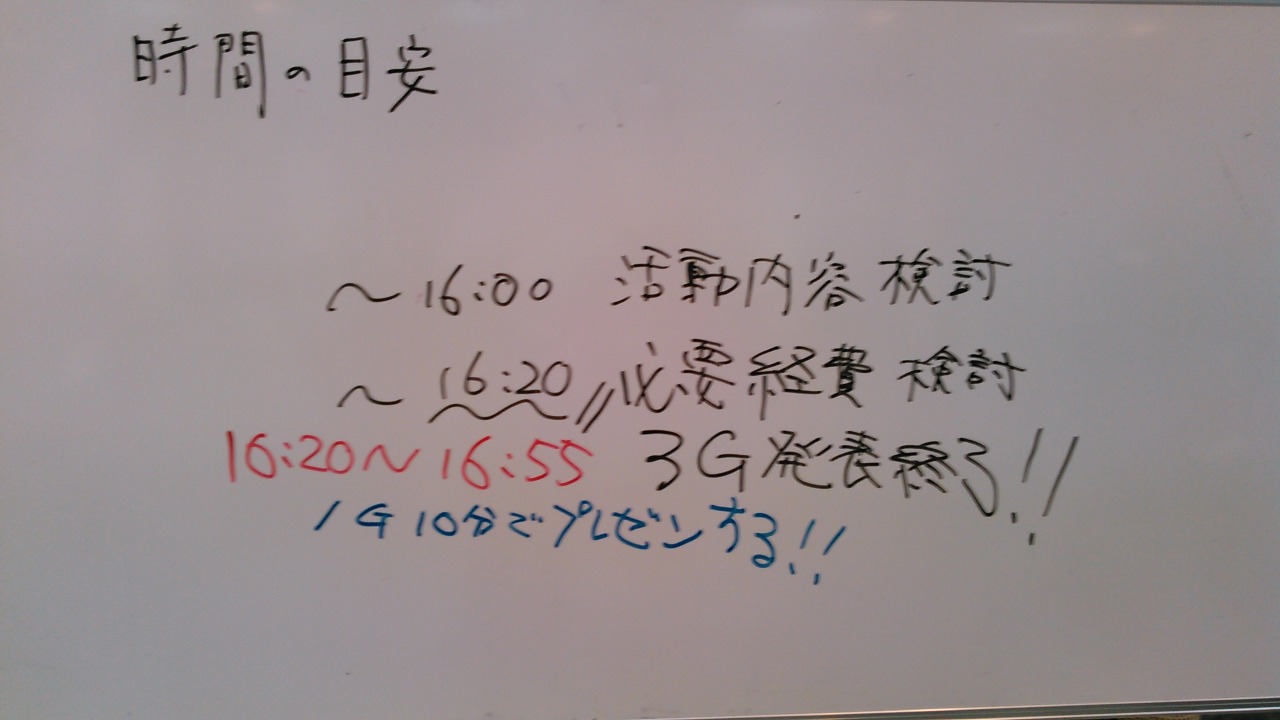 時間の目安
～16:00 活動内容検討
～16:20〃必要経費検討
16:20～16:55 3G発表終了!!
1G10分でプレゼンする!!